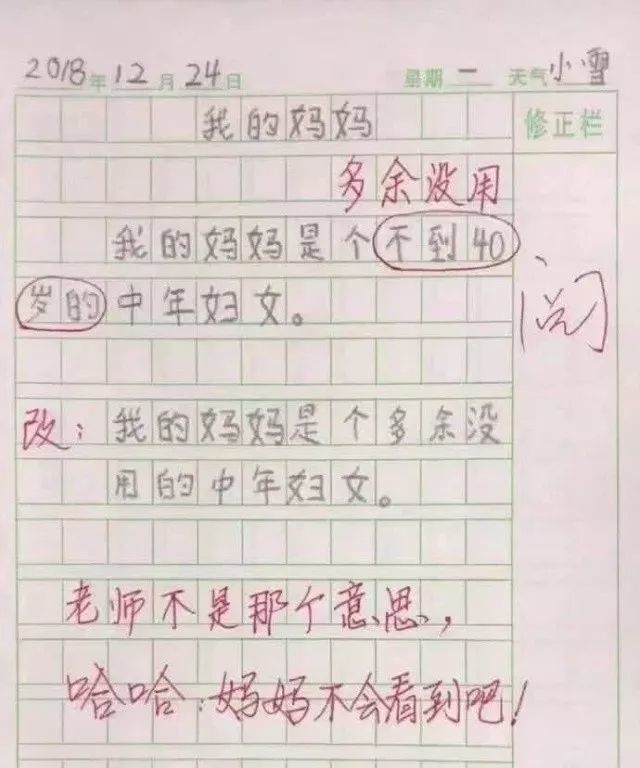 2018年12月24日 星期一 天气小雪
我的妈妈
修正栏
多余没用
我的妈妈是个不到40
岁的中年妇文。
阅
改：我的妈妈是个多余没
用的中年妇文。
老师不是那个意思，
哈哈：妈妈不会看到吧！